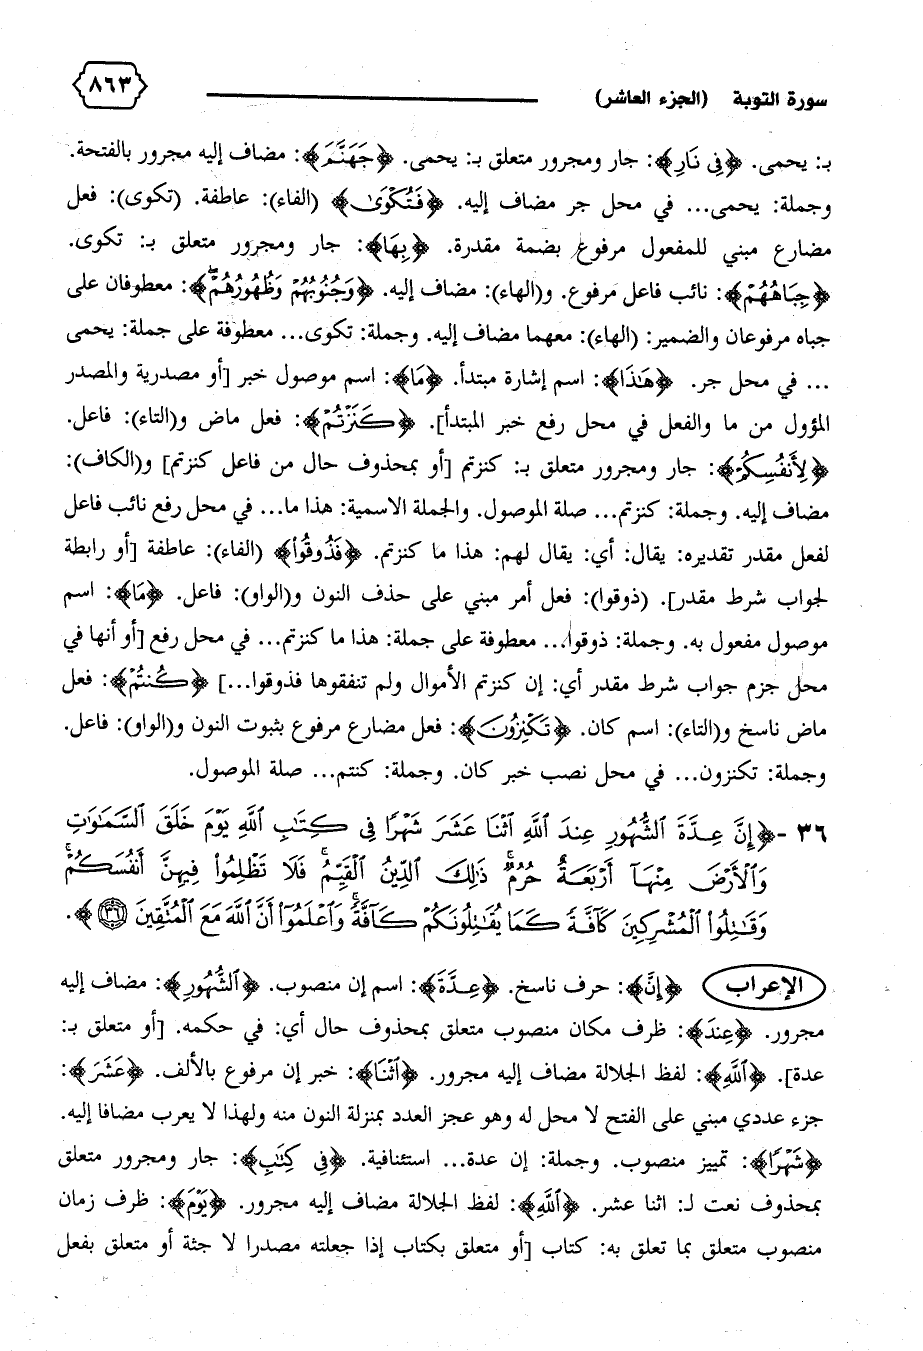 سورة التوبة (الجزء العاشر) ٨٦٣
بـ: يحمى. ﴿فِي نَارِ﴾: جار ومجرور متعلق بـ: يحمى. ﴿جَهَنَّمَ﴾: مضاف إليه مجرور بالفتحة.
وجملة: يحمى... في محل جر مضاف إليه. ﴿فَتُكْوَىٰ﴾ (الفاء): عاطفة. (تكوى): فعل
مضارع مبني للمفعول مرفوع بضمة مقدرة. ﴿بِهَا﴾: جار ومجرور متعلق بـ: تكوى.
﴿جِبَاهُهُمْ﴾: نائب فاعل مرفوع. و(الهاء): مضاف إليه. ﴿وَجُنُوبُهُمْ وَظُهُورُهُمْ ۖ﴾: معطوفان على
جباه مرفوعان والضمير: (الهاء): معهما مضاف إليه. وجملة: تكوى... معطوفة على جملة: يحمى
... في محل جر. ﴿هَٰذَا﴾: اسم إشارة مبتدأ. ﴿مَا﴾: اسم موصول خبر [أو مصدرية والمصدر
المؤول من ما والفعل في محل رفع خبر المبتدأ]. ﴿كَنَزْتُمْ﴾: فعل ماض و(التاء): فاعل.
﴿لِأَنفُسِكُمْ﴾: جار ومجرور متعلق بـ: كنزتم [أو بمحذوف حال من فاعل كنزتم] و(الكاف):
مضاف إليه. وجملة: كنزتم... صلة الموصول. والجملة الاسمية: هذا ما... في محل رفع نائب فاعل
لفعل مقدر تقديره: يقال: أي: يقال لهم: هذا ما كنزتم. ﴿فَذُوقُوا۟﴾ (الفاء): عاطفة [أو رابطة
لجواب شرط مقدر]. (ذوقوا): فعل أمر مبني على حذف النون و(الواو): فاعل. ﴿مَا﴾: اسم
موصول مفعول به. وجملة: ذوقوا... معطوفة على جملة: هذا ما كنزتم... في محل رفع [أو أنها في
محل جزم جواب شرط مقدر أي: إن كنزتم الأموال ولم تنفقوها فذوقوا...] ﴿كُنتُمْ﴾: فعل
ماض ناسخ و(التاء): اسم كان. ﴿تَكْنِزُونَ﴾: فعل مضارع مرفوع بثبوت النون و(الواو): فاعل.
وجملة: تكنزون... في محل نصب خبر كان. وجملة: كنتم... صلة الموصول.
٣٦ -﴿إِنَّ عِدَّةَ ٱلشُّهُورِ عِندَ ٱللَّهِ ٱثْنَا عَشَرَ شَهْرًا فِي كِتَٰبِ ٱللَّهِ يَوْمَ خَلَقَ ٱلسَّمَٰوَٰتِ
وَٱلْأَرْضَ مِنْهَآ أَرْبَعَةٌ حُرُمٌ ۚ ذَٰلِكَ ٱلدِّينُ ٱلْقَيِّمُ ۚ فَلَا تَظْلِمُوا۟ فِيهِنَّ أَنفُسَكُمْ ۚ
وَقَٰتِلُوا۟ ٱلْمُشْرِكِينَ كَآفَّةً كَمَا يُقَٰتِلُونَكُمْ كَآفَّةً ۚ وَٱعْلَمُوٓا۟ أَنَّ ٱللَّهَ مَعَ ٱلْمُتَّقِينَ ٣٦﴾.
الإعراب ﴿إِنَّ﴾: حرف ناسخ. ﴿عِدَّةَ﴾: اسم إن منصوب. ﴿ٱلشُّهُورِ﴾: مضاف إليه
مجرور. ﴿عِندَ﴾: ظرف مكان منصوب متعلق بمحذوف حال أي: في حكمه. [أو متعلق بـ:
عدة]. ﴿ٱللَّهِ﴾: لفظ الجلالة مضاف إليه مجرور. ﴿ٱثْنَا﴾: خبر إن مرفوع بالألف. ﴿عَشَرَ﴾:
جزء عددي مبني على الفتح لا محل له وهو عجز العدد بمنزلة النون منه ولهذا لا يعرب مضافا إليه.
﴿شَهْرًا﴾: تمييز منصوب. وجملة: إن عدة... استئنافية. ﴿فِي كِتَٰبِ﴾: جار ومجرور متعلق
بمحذوف نعت لـ: اثنا عشر. ﴿ٱللَّهِ﴾: لفظ الجلالة مضاف إليه مجرور. ﴿يَوْمَ﴾: ظرف زمان
منصوب متعلق بما تعلق به: كتاب [أو متعلق بكتاب إذا جعلته مصدرا لا جثة أو متعلق بفعل